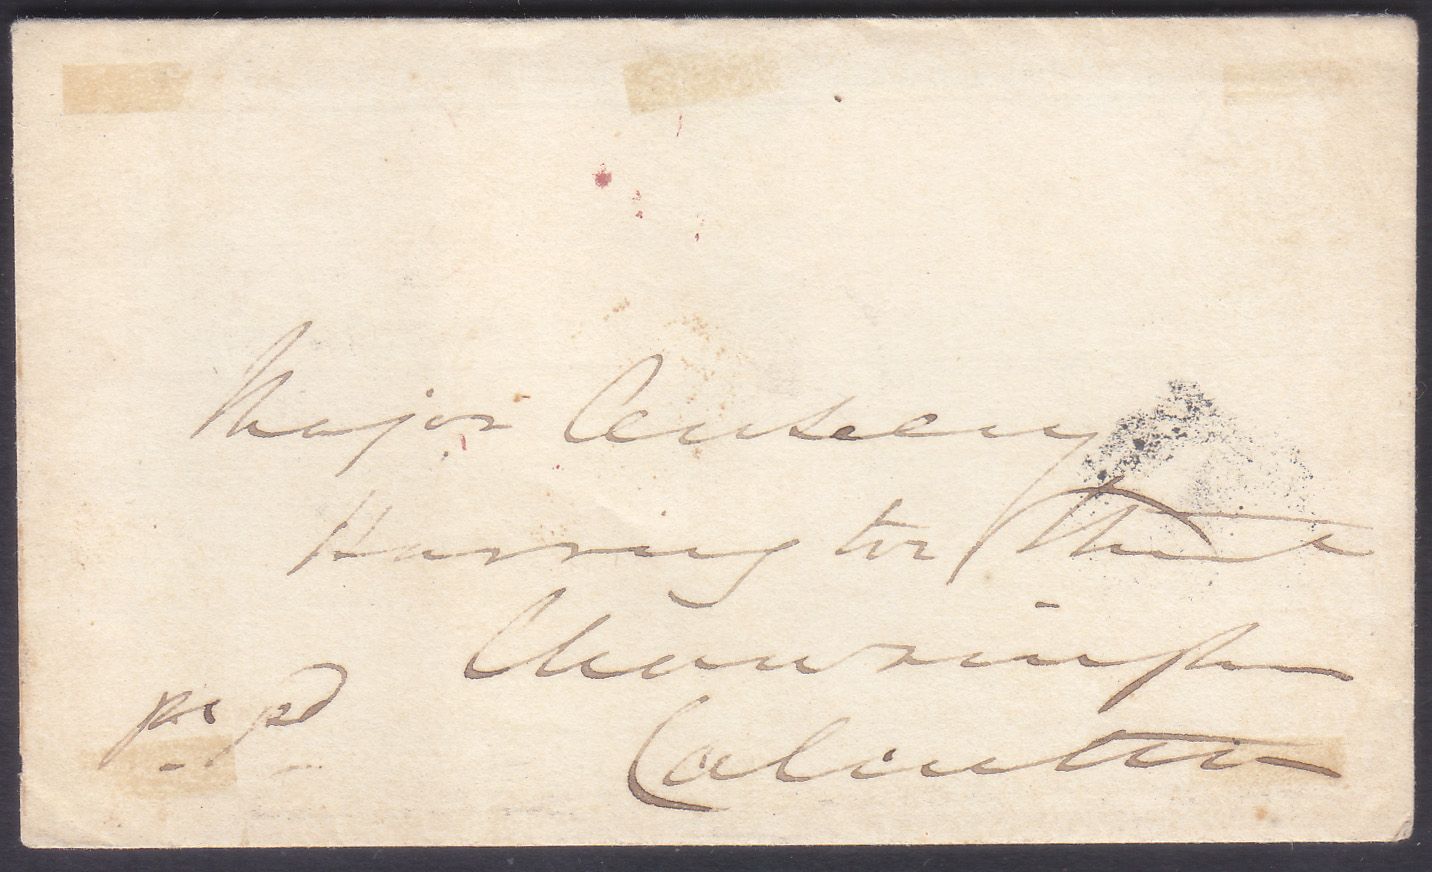 Major
Harrington Street
Chowringhee
Calcutta
pd